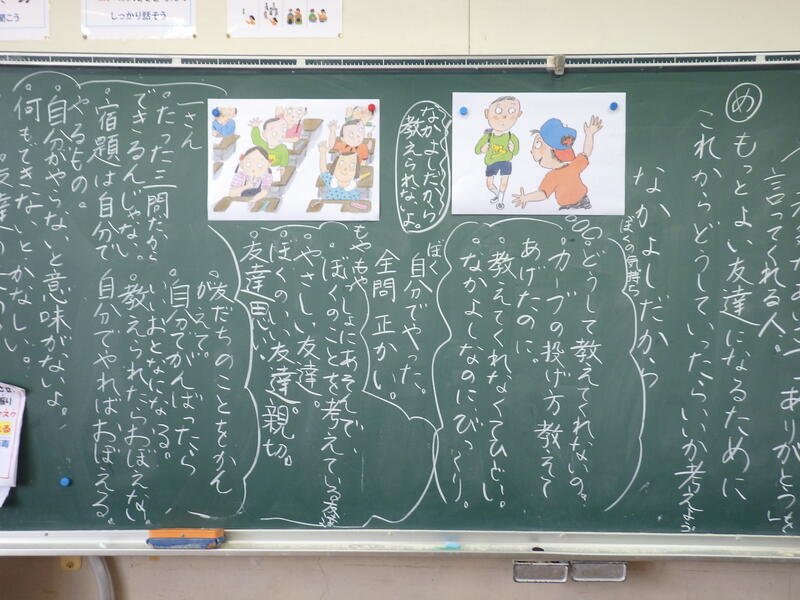 しっかり話そう
言ってくれる人。
め もっとよい友達になるために
これからどうしていったらいいか考えよう
なかよしだから
ぼくの気持ち
どうして教えてくれないの。
カーブの投げ方教えて
あげたのに。
教えてくれなくてひどい。
なかよしなのにびっくり。
なかよしだから
教えられないよ。
ぼく
自分でやった。
全問正かい。
もやもや
いっしょにあそんで、
ぼくのことを考えている。
やさしい友達。
ぼくのいい友達。親切。
友達思い。
友だちのことをかん
がえて。
自分でがんばったら
いいおとなになる。
教えられたらおぼえない
自分でやればおぼえる。
一さん
たった三問だから
できるんじゃない。
宿題は自分で
やるもの。
自分がやらないと意味がないよ。
何もできないとかなしい。